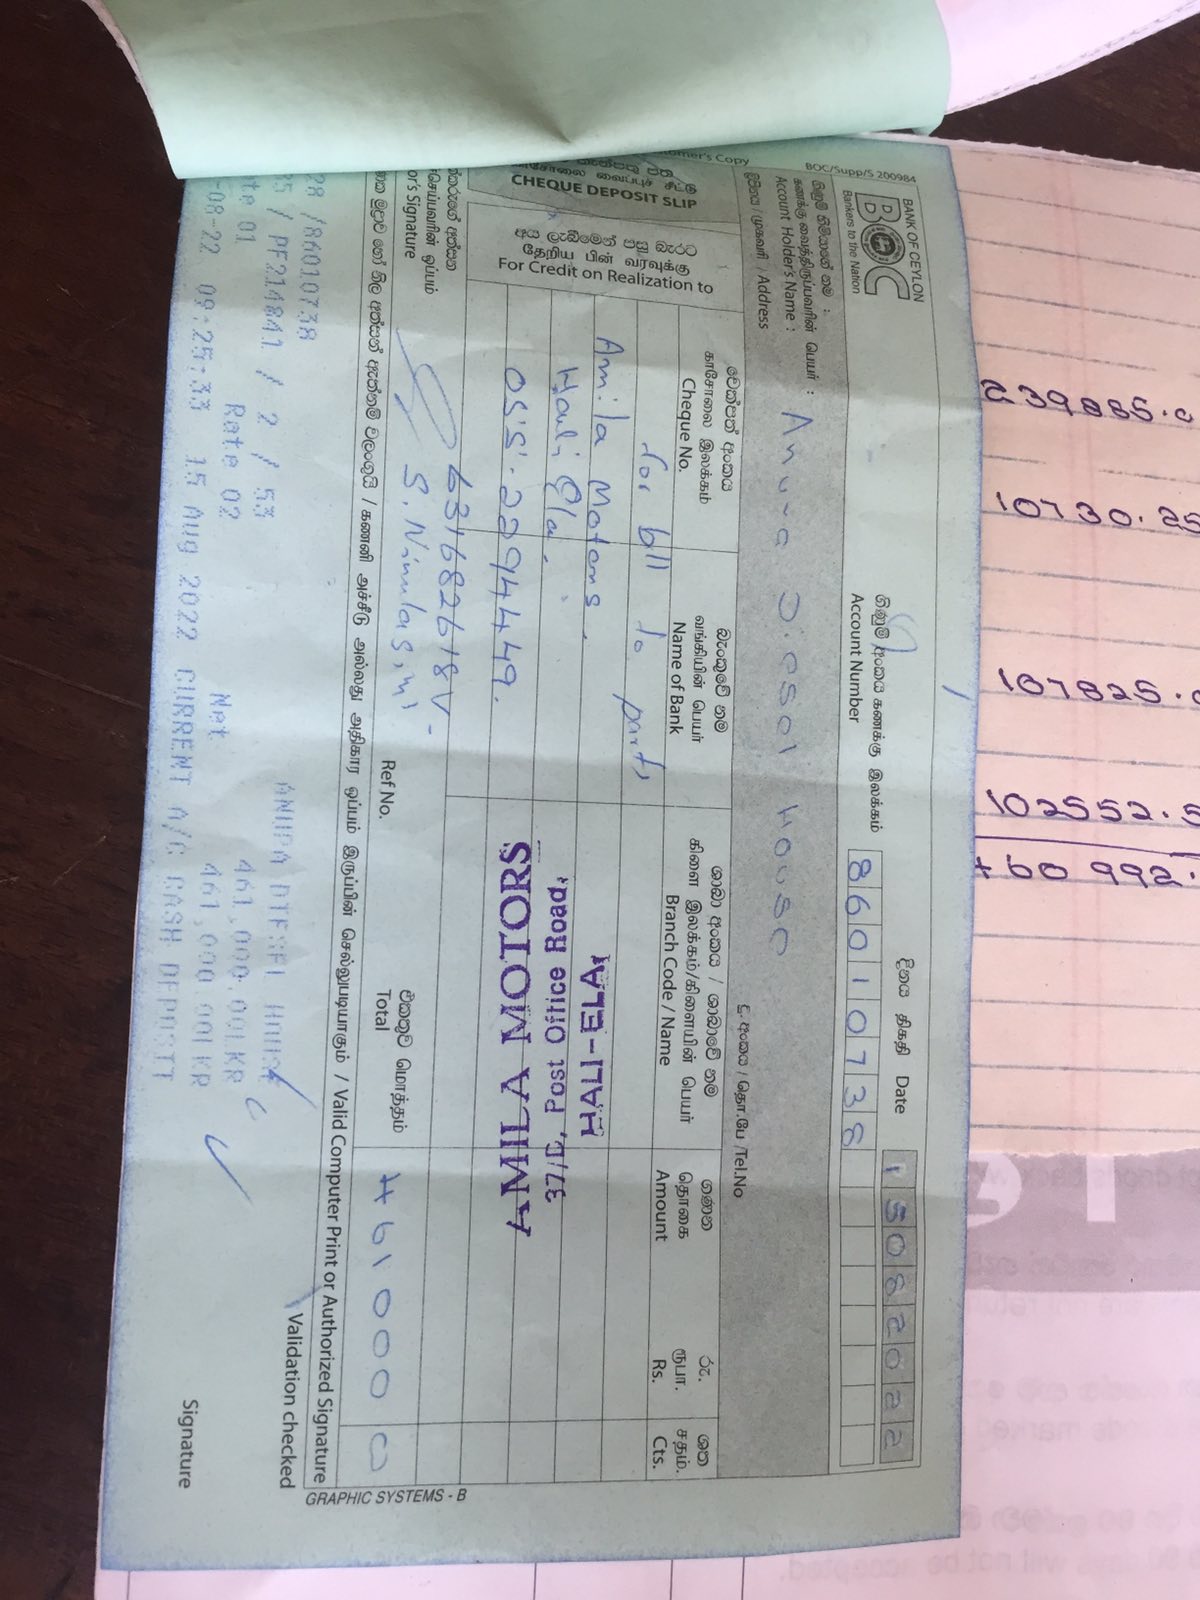 BOC/Supp/S 200984
Customer's Copy
BANK OF CEYLON
BOC
Bankers to the Nation
දිනය திகதி Date
15082022
ගිණුම් අංකය கணக்கு இலக்கம்
Account Number
86010738
ගිණුම් හිමියාගේ නම :
கணக்கு வைத்திருப்பவரின் பெயர் :
Account Holder's Name :
Anura Diesel House
ලිපිනය / முகவரி / Address
දු. අංකය / தொ.பே /Tel.No
காசோலை வைப்புச் சீட்டு
CHEQUE DEPOSIT SLIP
අය ලැබීමෙන් පසු බැරට
தேறிய பின் வரவுக்கு
For Credit on Realization to
චෙක්පත් අංකය
காசோலை இலக்கம்
Cheque No.
බැංකුවේ නම
வங்கியின் பெயர்
Name of Bank
ශාඛා අංකය / ශාඛාවේ නම
கிளை இலக்கம்/கிளையின் பெயர்
Branch Code / Name
ගණන
தொகை
Amount
රු.
ரூபா.
Rs.
ශත
சதம்.
Cts.
for bill to parts
Amila Motors.
Hali Ela.
055-2294449.
631682618V-
S. Nimulasiri
HALI-ELA
37/D, Post Office Road,
AMILA MOTORS
or's Signature
Ref No.
එකතුව மொத்தம்
Total
461000 0
කණனி அச்சீடு அல்லது அதிகார ஒப்பம் இருப்பின் செல்லுபடியாகும் / Valid Computer Print or Authorized Signature
Validation checked
Signature
GRAPHIC SYSTEMS - B
28 /86010738
ANURA DIESEL HOUSE
25 / PF214841 / 2 / 53
461,000.00LKR
te 01 Rate 02 Net
461,000.00LKR
-08-22 09:25:33 15 Aug 2022 CURRENT A/C CASH DEPOSIT
239885.0
10730.25
107825.0
102552.5
460992.